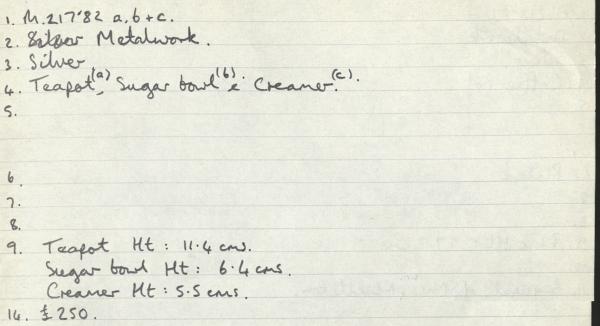 1. M.217'82 a, b + c.
2. Silver Metalwork.
3. Silver
4. Teapot(a), Sugar bowl(b) & Creamer.(c)
5.
6.
7.
8.
9. Teapot Ht : 11.4 cms.
Sugar bowl Ht : 6.4 cms.
Creamer Ht : 5.5 cms.
14. £250.